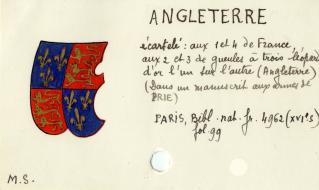 ANGLETERRE
écartelé : aux 1 et 4 de France,
aux 2 et 3 de gueules à trois léopards
d'or l'un sur l'autre (Angleterre)
(Dans un manuscrit aux armes de
BRIE)
PARIS, Bibl. nat. fr. 4962 (XVIes)
fol. 99
M.S.